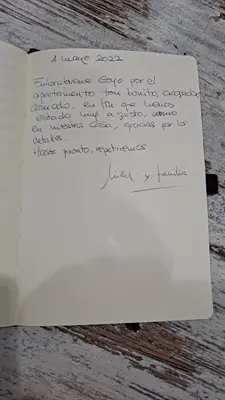 1 mayo 2022
Enhorabuena Goyo por el
apartamento tan bonito, acogedor
cómodo, en fin que hemos
estado muy a gusto, como
en nuestra casa, gracias por los
detalles.
Hasta pronto, repetiremos
y familia